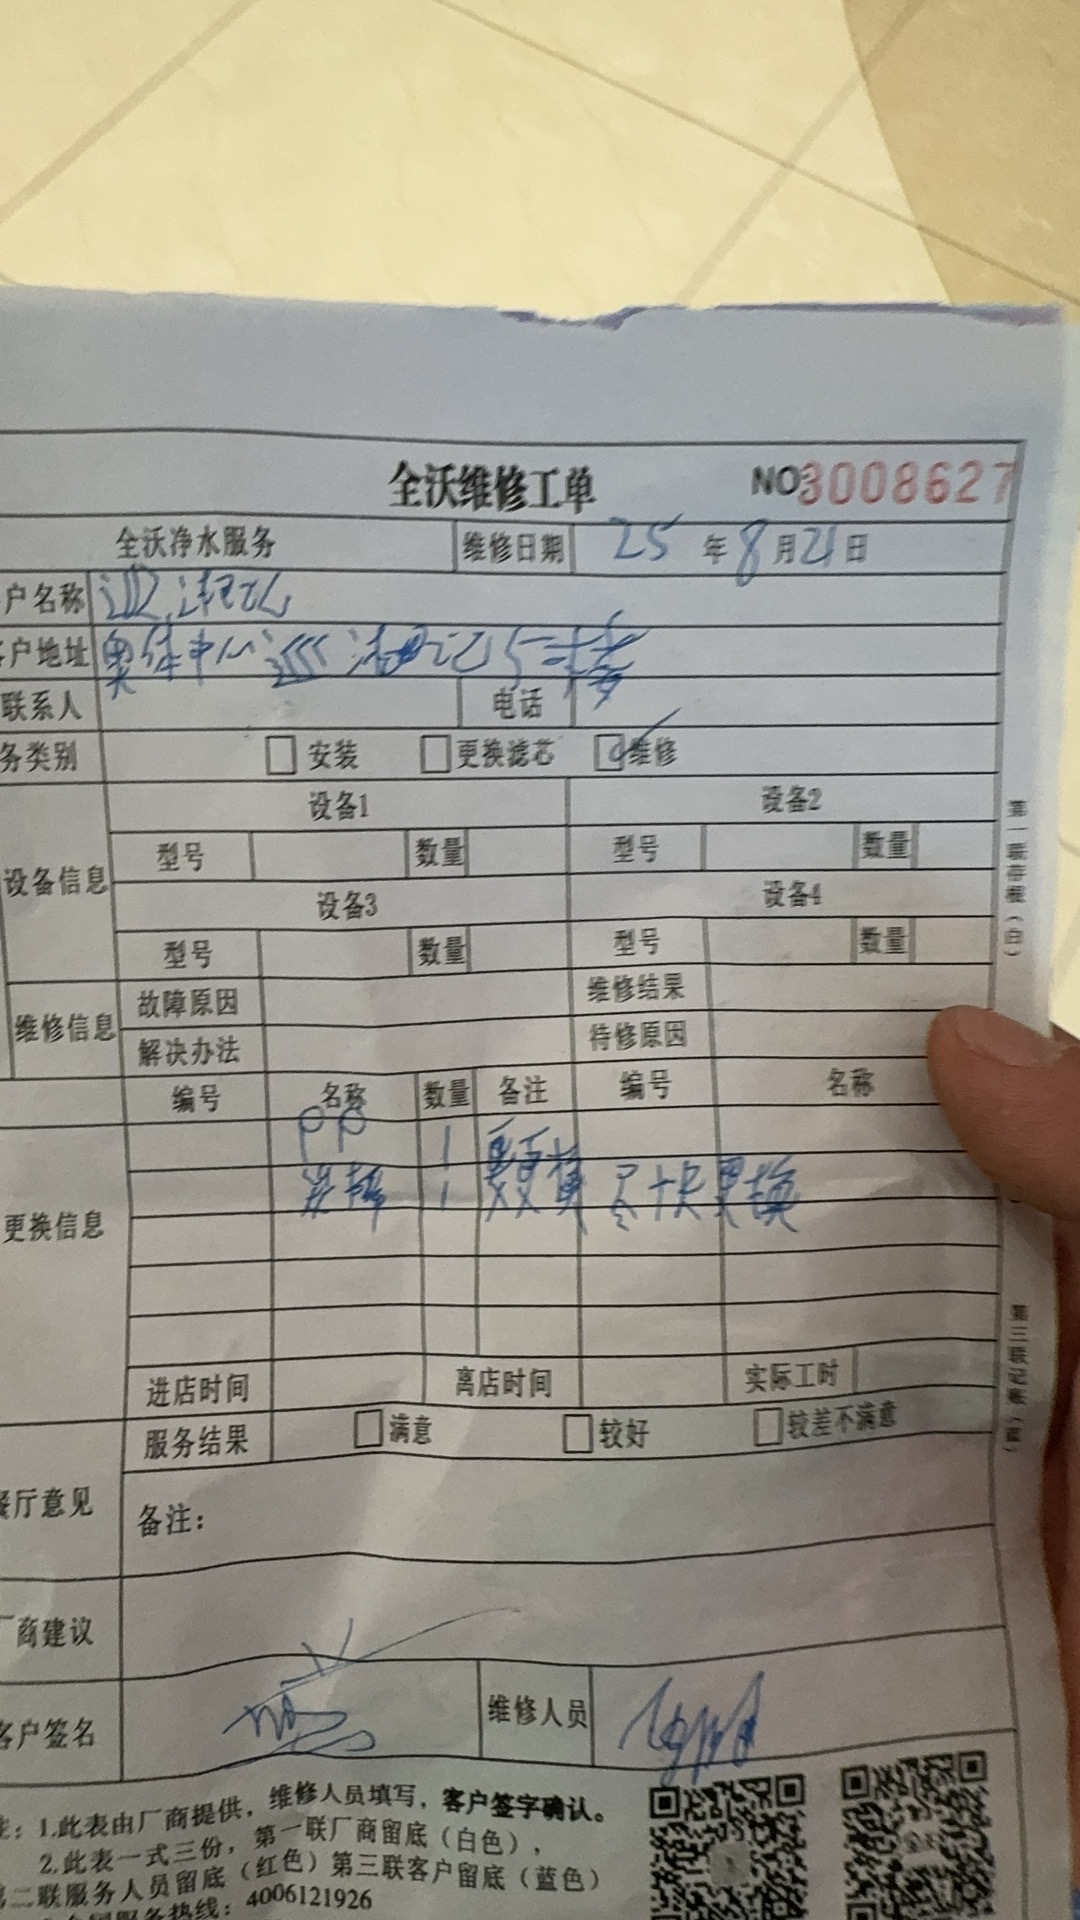 全沃维修工单 NO3008627
全沃净水服务 维修日期 25年8月21日
户名称
客户地址 奥体中心 与三楼
联系人 电话
务类别 安装 更换滤芯 维修
设备1 设备2
型号 数量 型号 数量
设备信息
设备3 设备4
型号 数量 型号 数量
故障原因 维修结果
维修信息
解决办法 待修原因
编号 名称 数量 备注 编号 名称
PP 1
1 需更换 尽快更换
更换信息
进店时间 离店时间 实际工时
服务结果 满意 较好 较差不满意
餐厅意见
备注：
厂商建议
客户签名 维修人员
注：1.此表由厂商提供，维修人员填写，客户签字确认。
2.此表一式三份，第一联厂商留底（白色），
第二联服务人员留底（红色）第三联客户留底（蓝色）
全国服务热线：4006121926
第一联存根（白）
第三联记账（蓝）